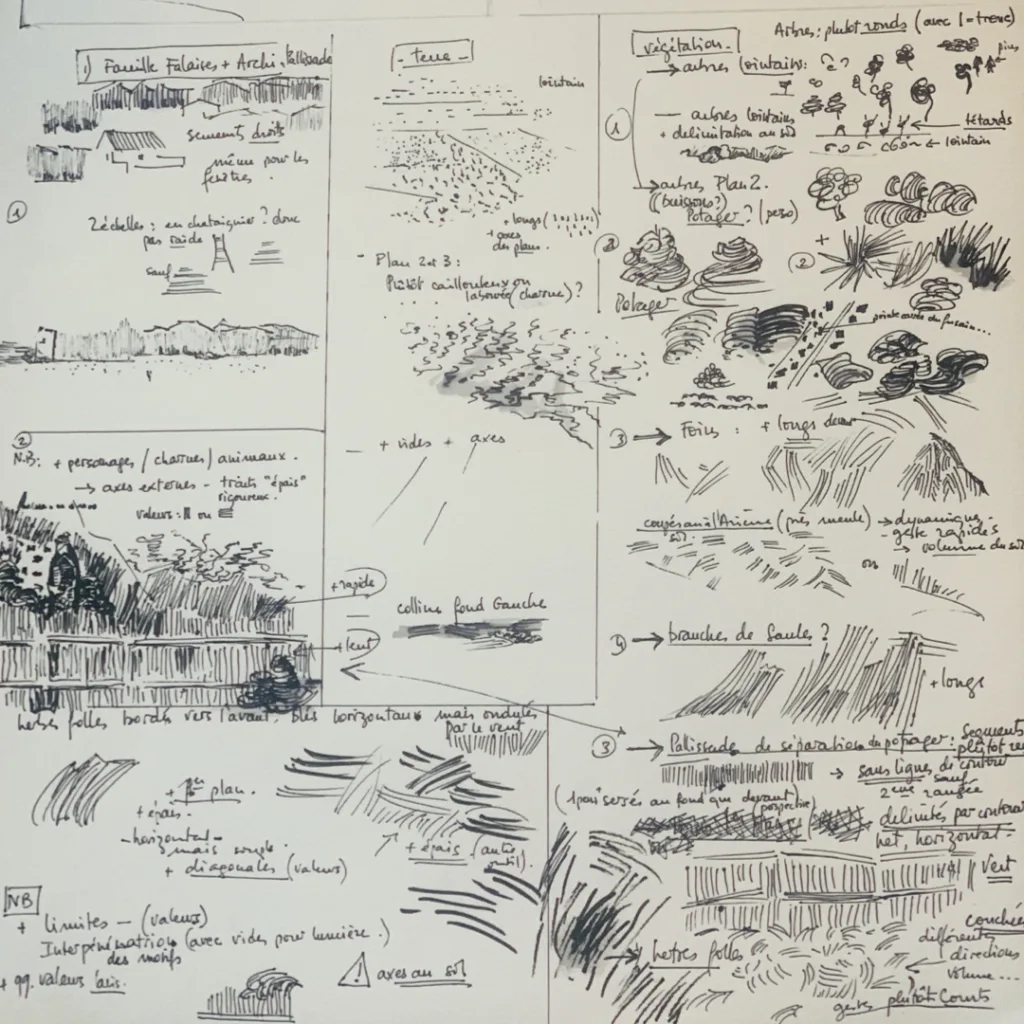 1) Famille Falaises + Archi. + Pallissade
segments droits
même pour les
fenêtres.
1
2 échelles : en chataignier ? donc
pas raide
sauf
2
N.B: + personnages / charrues / animaux.
→ axes externes - traits "épais"
rigoureux.
valeurs : ou
+ rapide
+ lent
- terre -
lointain
+ longs
+ axes
des plans.
- Plan 2 et 3 :
Plutôt caillouteux ou
labourée (charrue) ?
+ vides + axes
colline fond Gauche
végétation.
Arbres : plutôt ronds (avec 1 = tronc)
pins
→ arbres lointains : ?
1
— arbres lointains
+ délimitation au sol
têtards
← lointain
→ arbres Plan 2.
(buissons ?)
Potager ? (perso)
2
+
2
Potager
pointe carrée du fusain...
3 → Foins : + longs devant
coupés au sol (près meule)
→ dynamiques
- geste rapides
→ volume du sol
ou
4 → branches de Saules ?
+ longs
3 → Pallissade de séparation du potager : segments
plutôt
→ sans lignes de contour
sauf
2ème rangée
(+ serrés au fond que devant)
(perspective)
délimités par contour
net, horizontal.
Vert
→ herbes folles
couchée
différentes
directions
volume...
gestes plutôt courts
herbes folles bordés vers l'avant, blés horizontaux mais ondulés
par le vent
+ 1er plan.
+ épais.
- horizontal -
mais souple.
+ diagonales (valeurs)
+ épais (autre
outil).
NB
+ limites — (valeurs)
Interpénétration (avec vides pour lumière.)
des motifs
+ qq. valeurs
! axes au sol